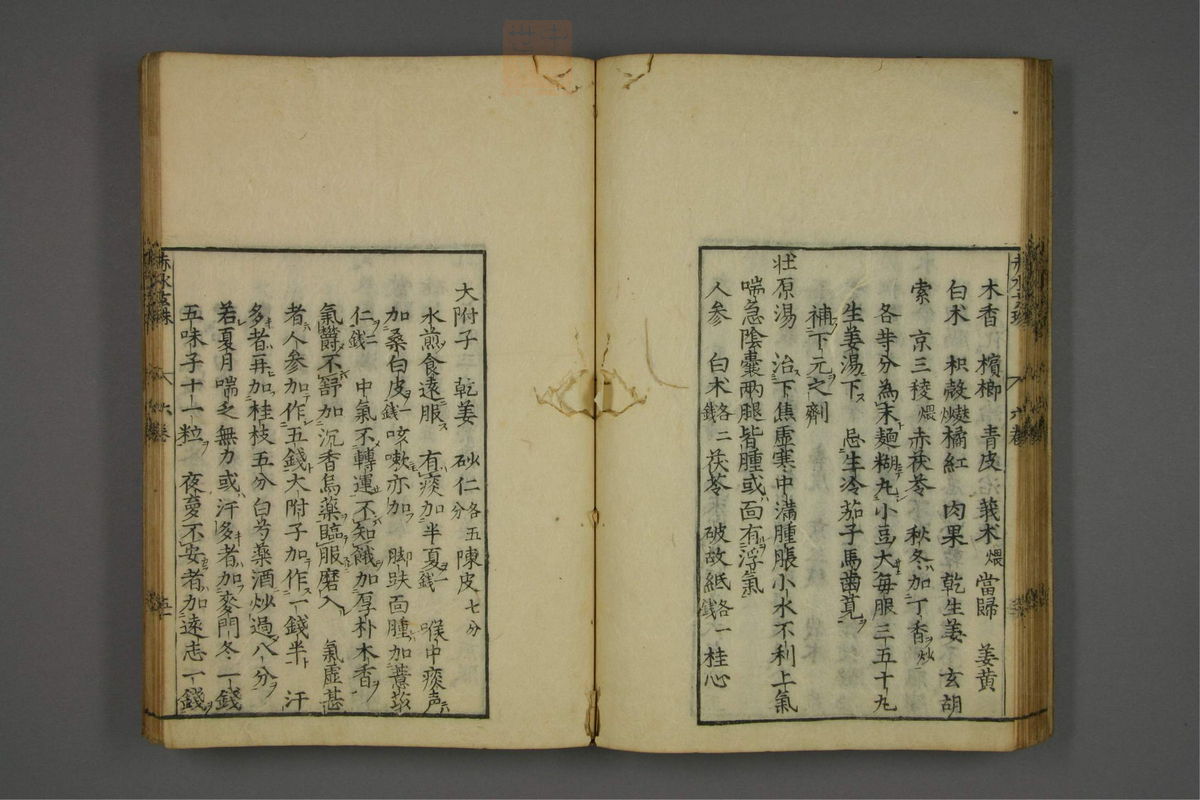 木香 檳榔 青皮 莪朮煨 當歸 姜黄
白朮 枳殻 橘紅 肉果 乾生姜 玄胡
索 京三稜煨 赤茯苓 秋冬加丁香炒
各等分為末麺糊丸小豆大毎服三五十丸
生姜湯下 忌生冷茄子馬齒莧
補下元之劑
壮原湯 治下焦虚寒中満腫脹小水不利上氣
喘急陰嚢兩腿皆腫或面有浮氣
人參 白朮各二錢 茯苓 破故紙各一錢 桂心
大附子 乾姜 砂仁各五分 陳皮七分
水煎食遠服 有痰加半夏一錢 喉中痰声
加桑白皮一錢 咳嗽亦加 脚趺面腫加薏苡
仁二錢 中氣不轉運不知餓加厚朴木香
氣欝不舒加沉香烏藥臨服磨入 氣虚甚
者人參加作五錢大附子加作一錢半 汗
多者再加桂枝五分白芍藥酒炒過八分
若夏月喘乏無力或汗多者加麥門冬一錢
五味子十一粒 夜夢不安者加遠志一錢
赤水玄珠 六巻